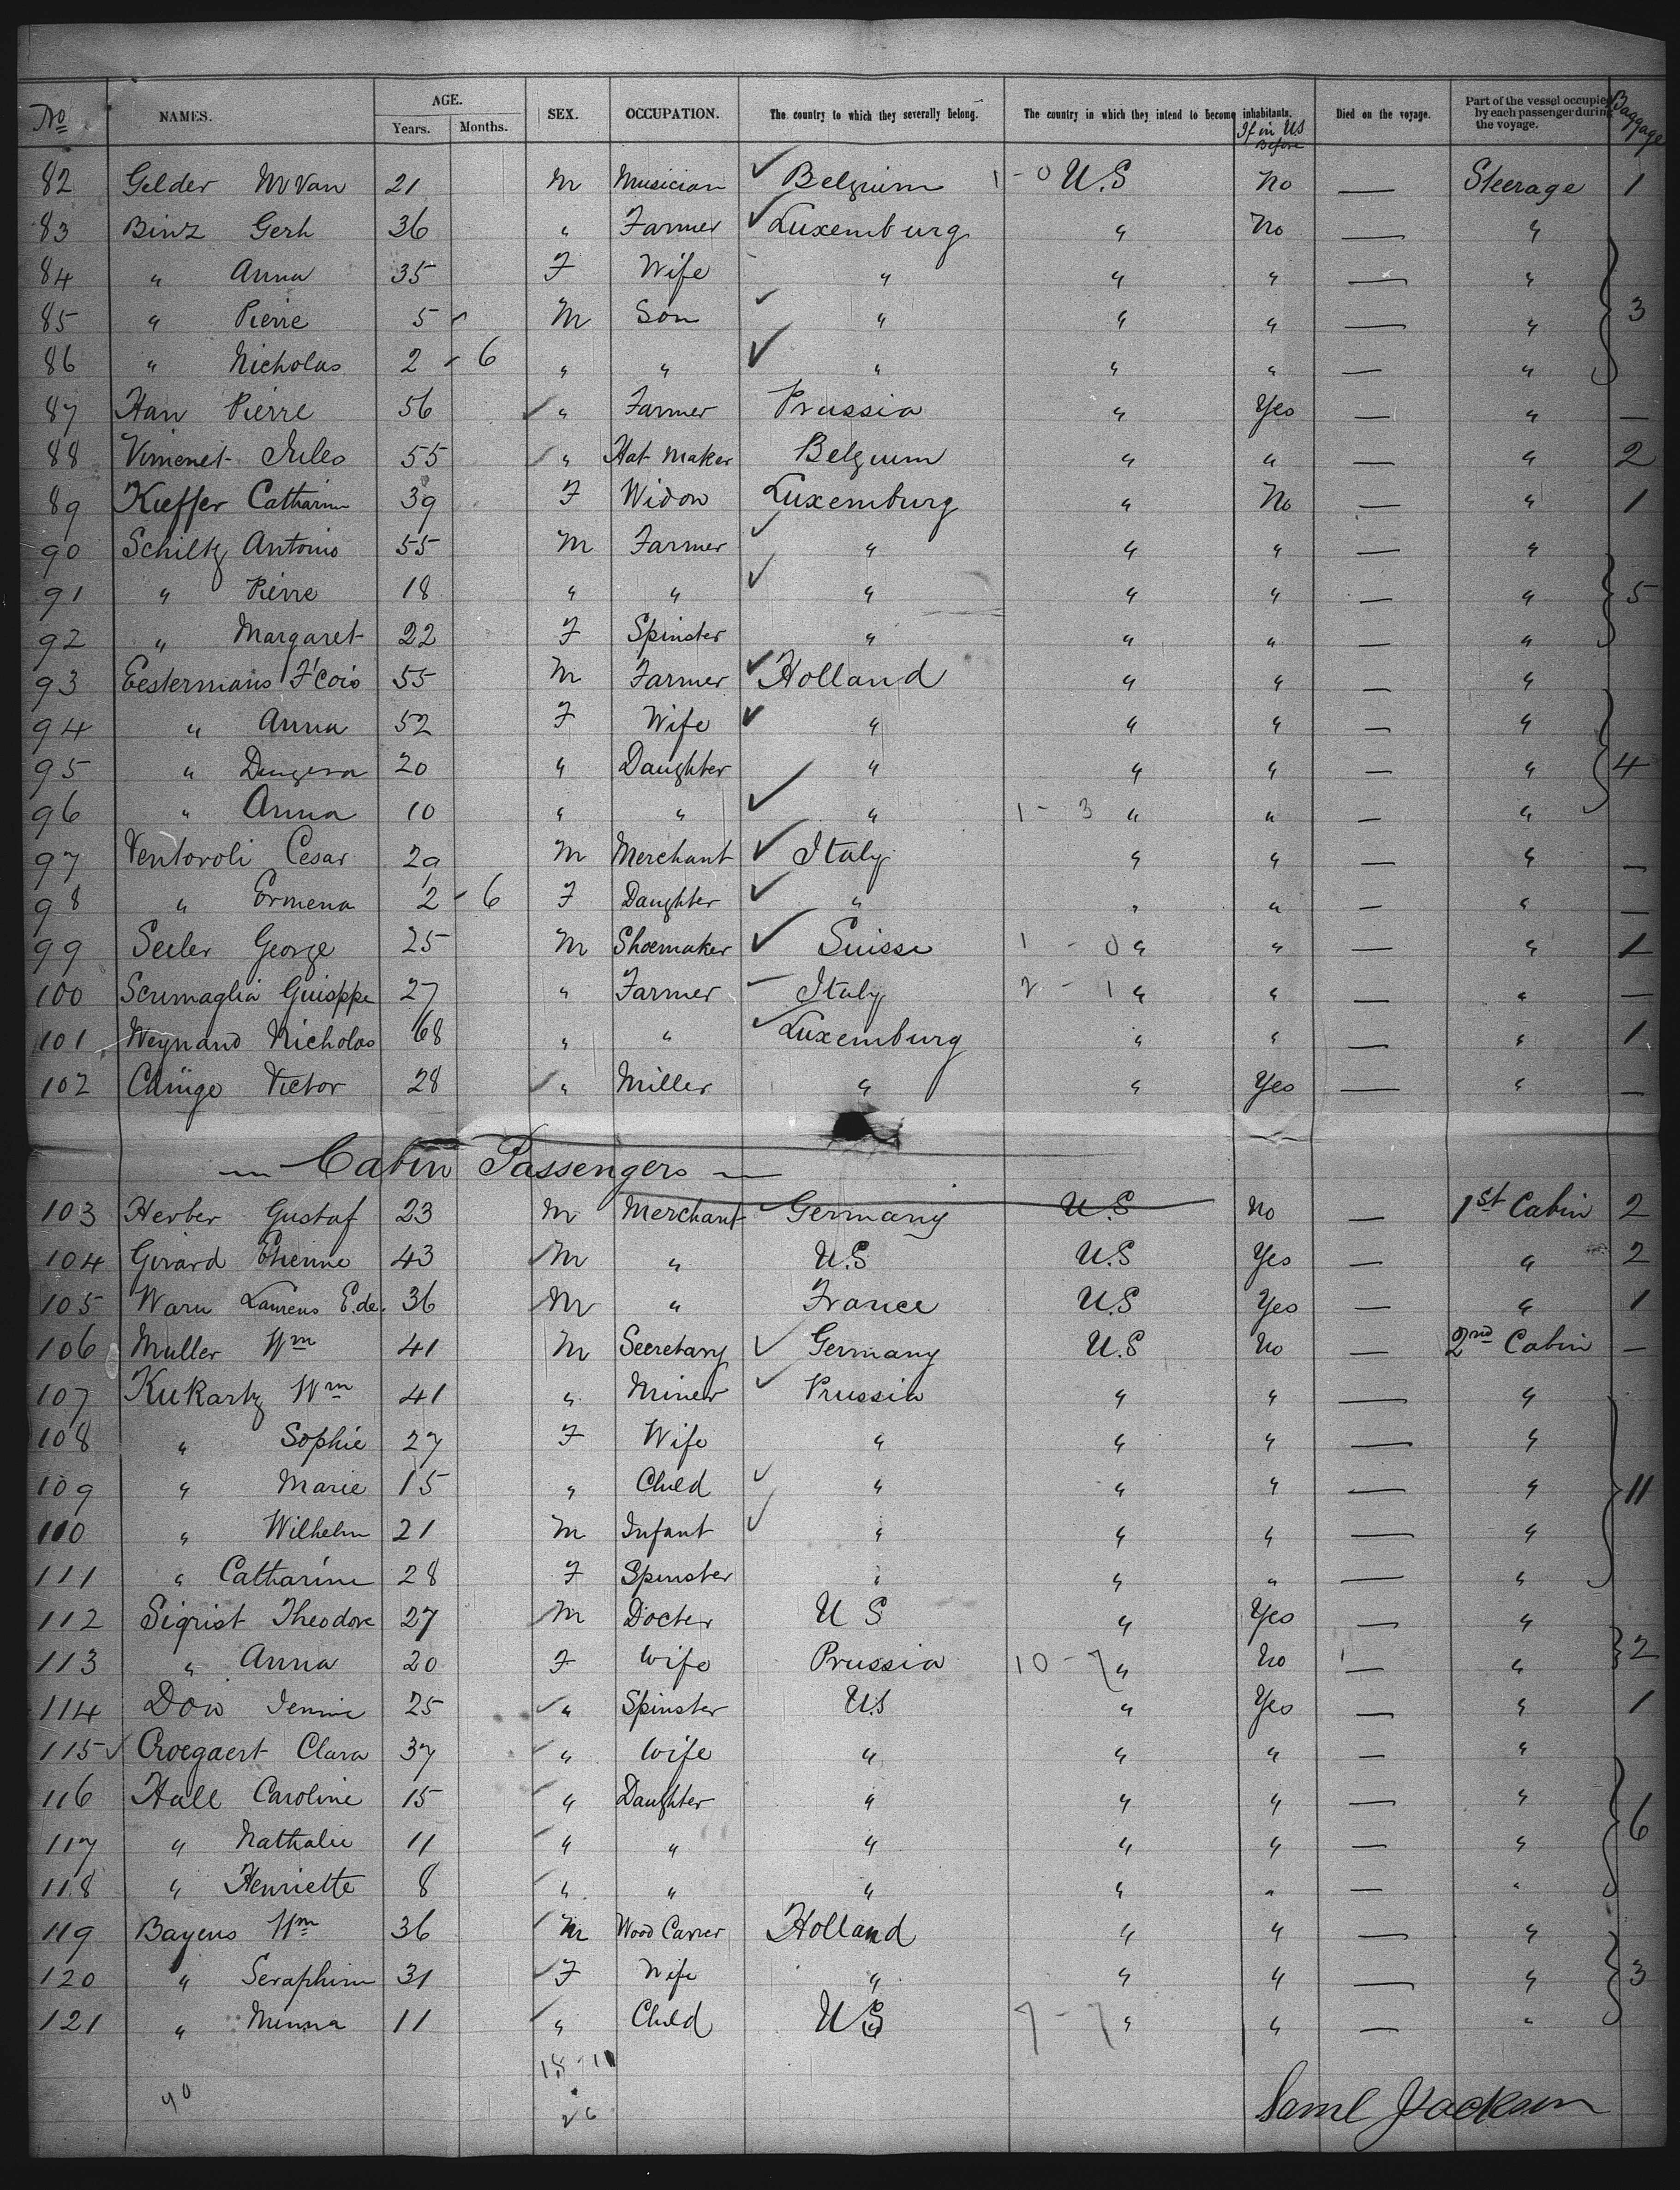 No NAMES. AGE. Years. Months. SEX. OCCUPATION. The country to which they severally belong. The country in which they intend to become inhabitants. If in US Before Died on the voyage. Part of the vessel occupied by each passenger during the voyage. Baggage
82 Gelder M Van 21 M Musician Belgium 1 - 0 U.S No — Steerage 1
83 Binz Gerh 36 " Farmer Luxemburg " No — "
84 " Anna 35 F Wife " " " — "
85 " Pierre 5 M Son " " " — " 3
86 " Nicholas 2 - 6 " " " " " — "
87 Han Pierre 56 " Farmer Prussia " Yes — " —
88 Vimenet Jules 55 " Hat Maker Belgium " " — " 2
89 Kieffer Catharin 39 F Widow Luxemburg " No — " 1
90 Schiltz Antonio 55 M Farmer " " " — "
91 " Pierre 18 " " " " " — " 5
92 " Margaret 22 F Spinster " " " — "
93 Eestermans F'cois 55 M Farmer Holland " " — "
94 " Anna 52 F Wife " " " — "
95 " 20 " Daughter " " " — " 4
96 " Anna 10 " " " 1 - 3 " " — "
97 Ventovoli Cesar 29 M Merchant Italy " " — " —
98 " Ermena 2 - 6 F Daughter " " " — " —
99 Seiler George 25 M Shoemaker Suisse 1 - 0 " " — " 1
100 Scrimaglia Guisppe 27 " Farmer Italy 2 - 1 " " — " —
101 Weynand Nicholas 68 " " Luxemburg " " — " 1
102 Victor 28 " Miller " " Yes — " —
— Cabin Passengers —
103 Herber Gustaf 23 M Merchant Germany U.S No — 1st Cabin 2
104 Girard Etienne 43 M " U.S U.S Yes — " 2
105 Waru Laurens E.de. 36 M " France U.S Yes — " 1
106 Muller Wm 41 M Secretary Germany U.S No — 2nd Cabin —
107 Kukartz Wm 41 " Miner Prussia " " — "
108 " Sophie 27 F Wife " " " — "
109 " Marie 15 " Child " " " — " 11
110 " Wilhelm 21 M Infant " " " — "
111 " Catharine 28 F Spinster " " " — "
112 Sigrist Theodore 27 M Docter U S " Yes — "
113 " Anna 20 F Wife Prussia 10 - 7 " No — " 2
114 Dow Jennie 25 " Spinster U.S " Yes — " 1
115 Croegaert Clara 37 " Wife " " " — "
116 Hall Caroline 15 " Daughter " " " — "
117 " Nathalie 11 " " " " " — " 6
118 " Henriette 8 " " " " " — "
119 Bayens Wm 36 M Wood Carver Holland " " — "
120 " Seraphine 31 F Wife " " " — " 3
121 " Minna 11 " Child U S 7 - 7 " " — "
18 - 11
40
26
Saml Jackson